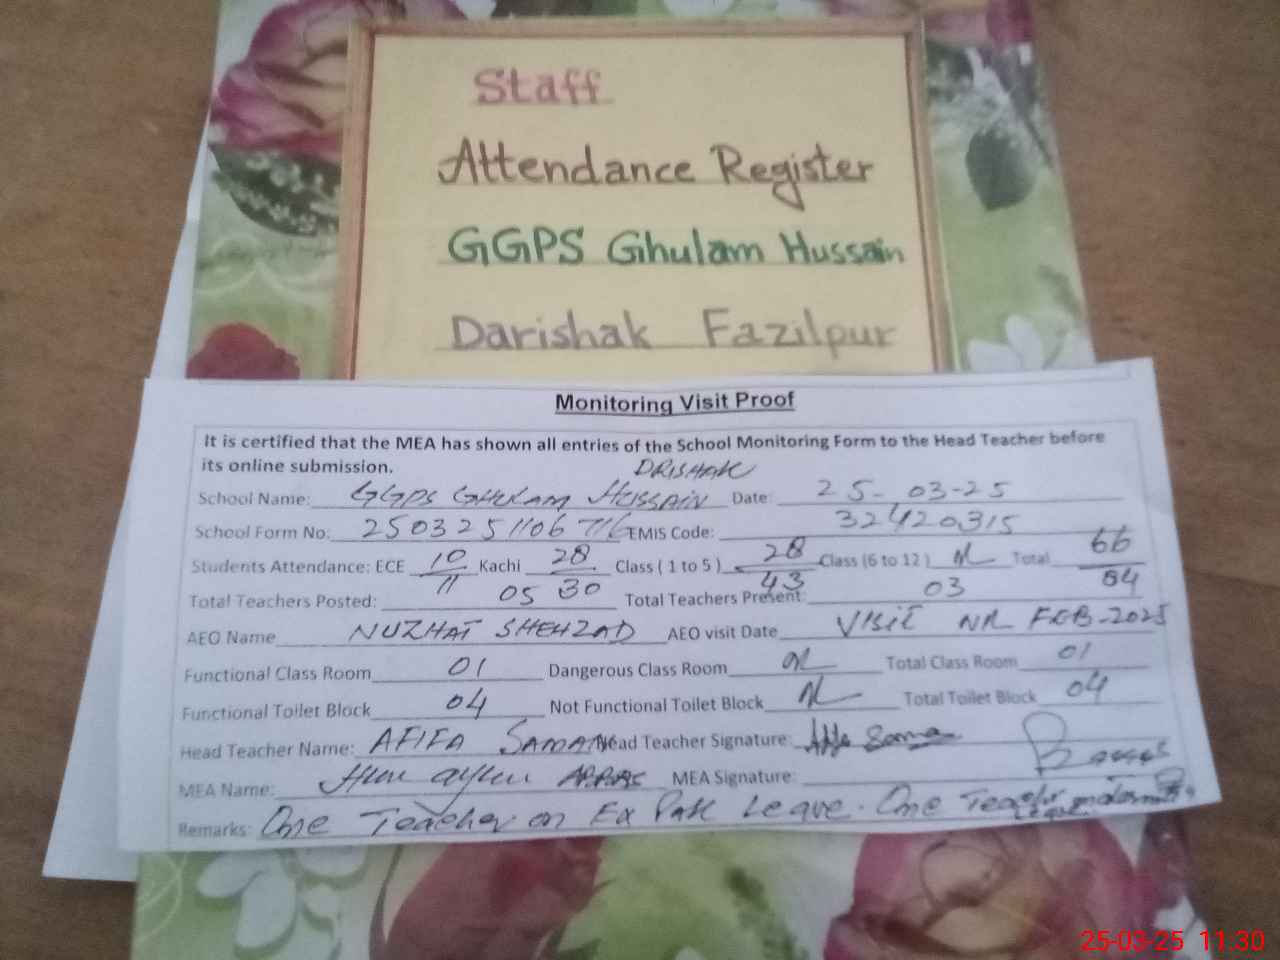 Staff
Attendance Register
GGPS Ghulam Hussain
Darishak Fazilpur
Monitoring Visit Proof
It is certified that the MEA has shown all entries of the School Monitoring Form to the Head Teacher before
its online submission.
DRISHAK
School Name: GGPS GHULAM HUSSAIN Date: 25-03-25
School Form No: 2503251106716 EMIS Code: 32420315
Students Attendance: ECE 10/11 Kachi 28/30 Class ( 1 to 5 ) 28/43 Class (6 to 12 ) Total 66/84
Total Teachers Posted: 05 Total Teachers Present: 03
AEO Name NUZHAT SHEHZAD AEO visit Date VISIT NR FEB-2025
Functional Class Room 01 Dangerous Class Room Total Class Room 01
Functional Toilet Block 04 Not Functional Toilet Block Total Toilet Block 04
Head Teacher Name: AFIFA SAMAN Head Teacher Signature:
MEA Name: ABBAS MEA Signature:
Remarks: One Teacher on Ex Pak Leave. One Teacher
25-03-25 11:30